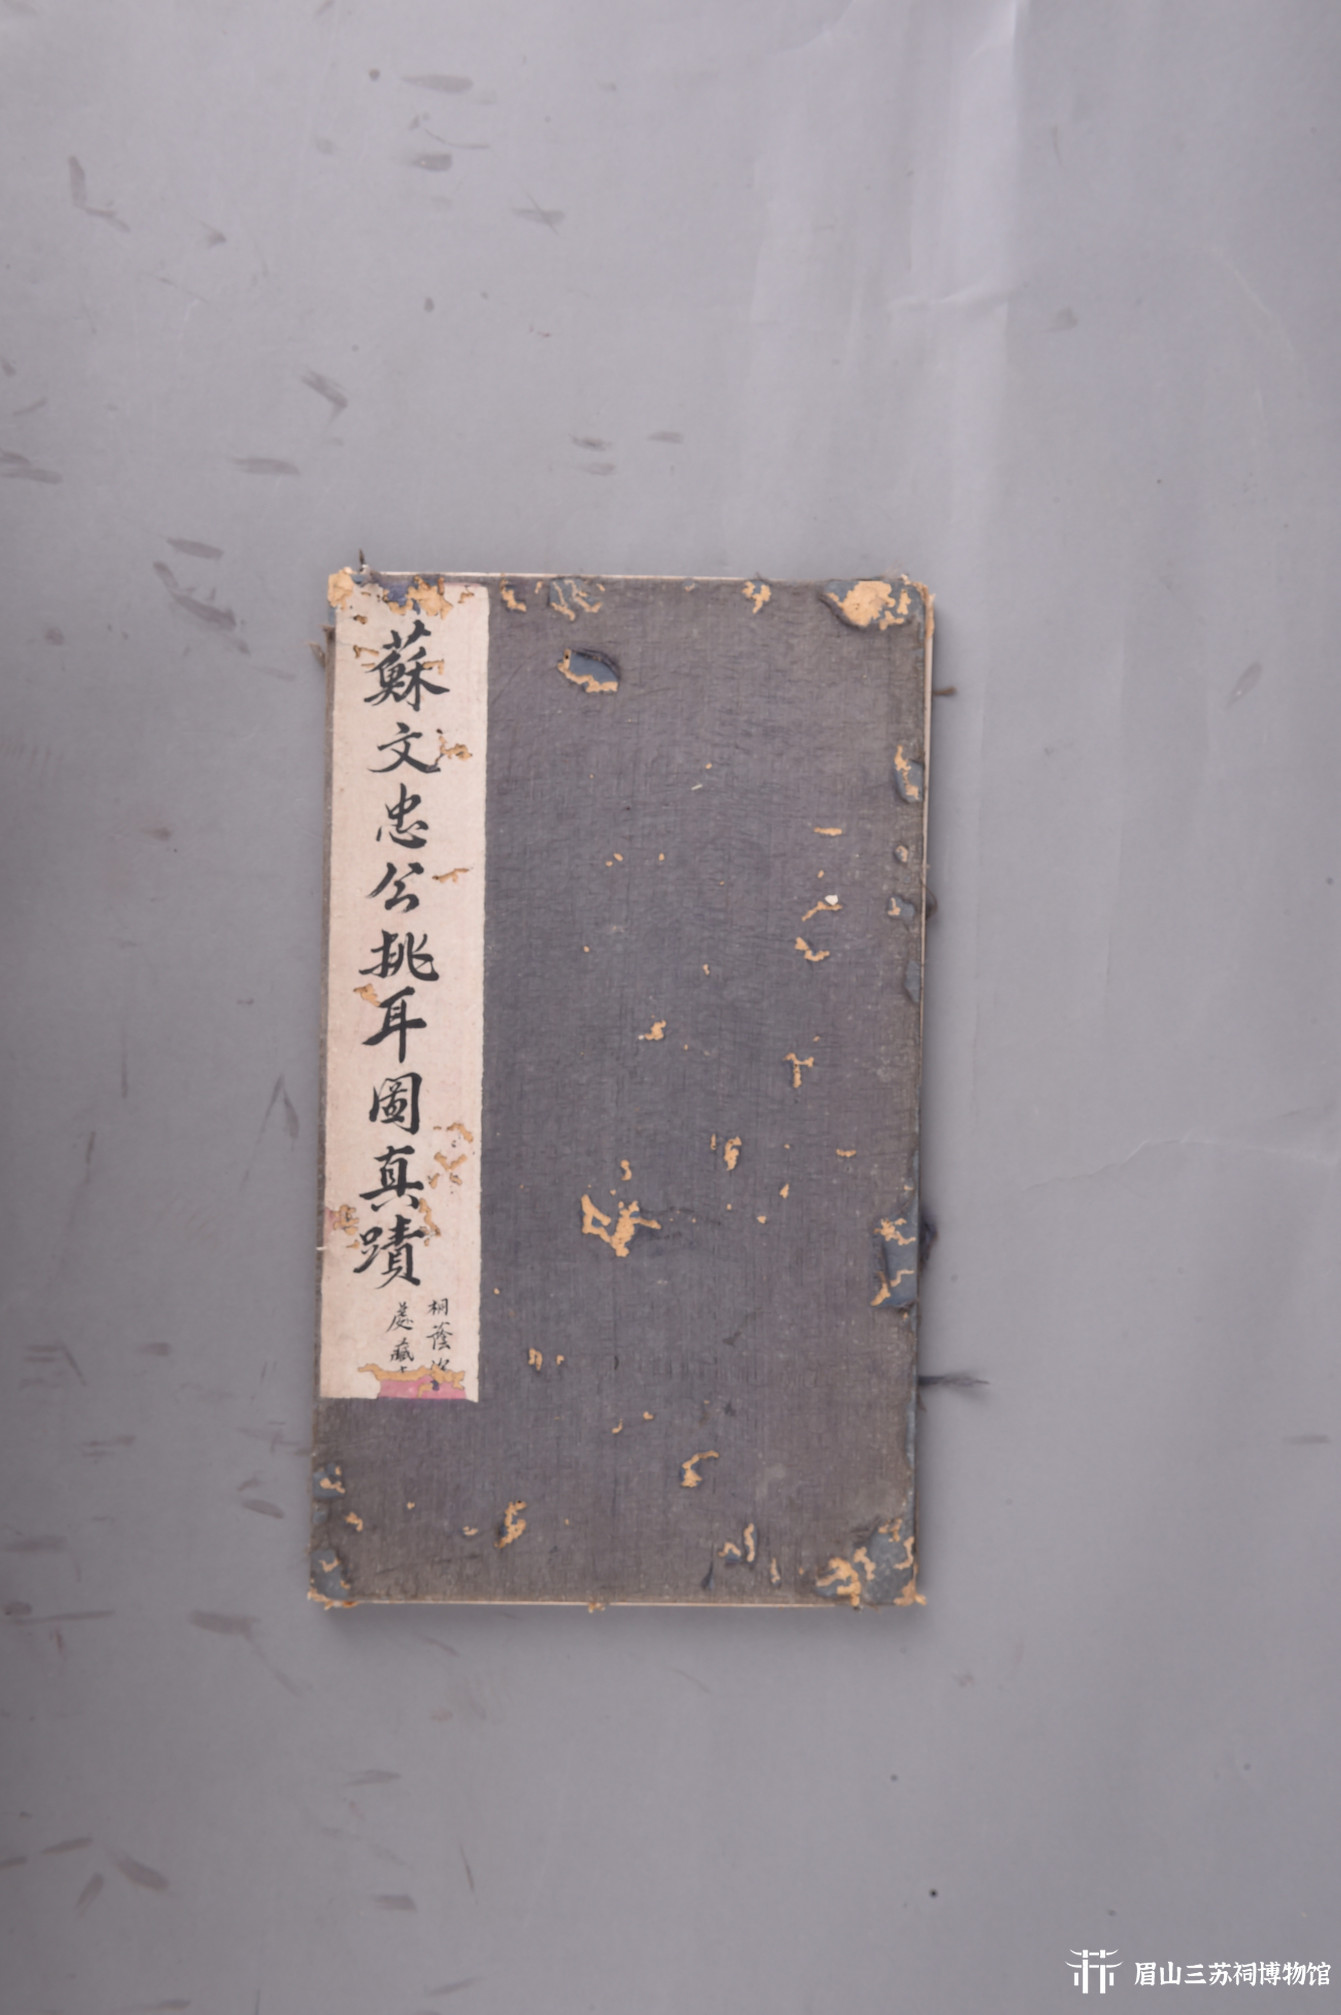 蘇文忠公挑耳圖真蹟
桐蔭
處藏
眉山三苏祠博物馆